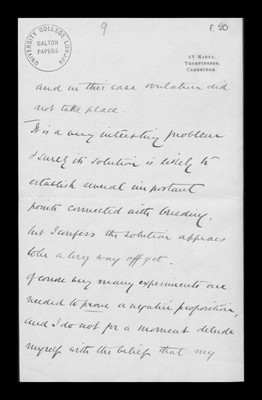 UNIVERSITY COLLEGE LONDON
GALTON
PAPERS
9
f. 20
TRUMPINGTON,
CAMBRIDGE.
and in this case ovulation did
not take place.
It is a very interesting problem
& surely its solution is likely to
establish several important
points connected with breeding,
but I confess the solution appears
to be a long way off yet.
Of course very many experiments are
needed to prove a negative proposition,
and I do not for a moment delude
myself with the belief that my